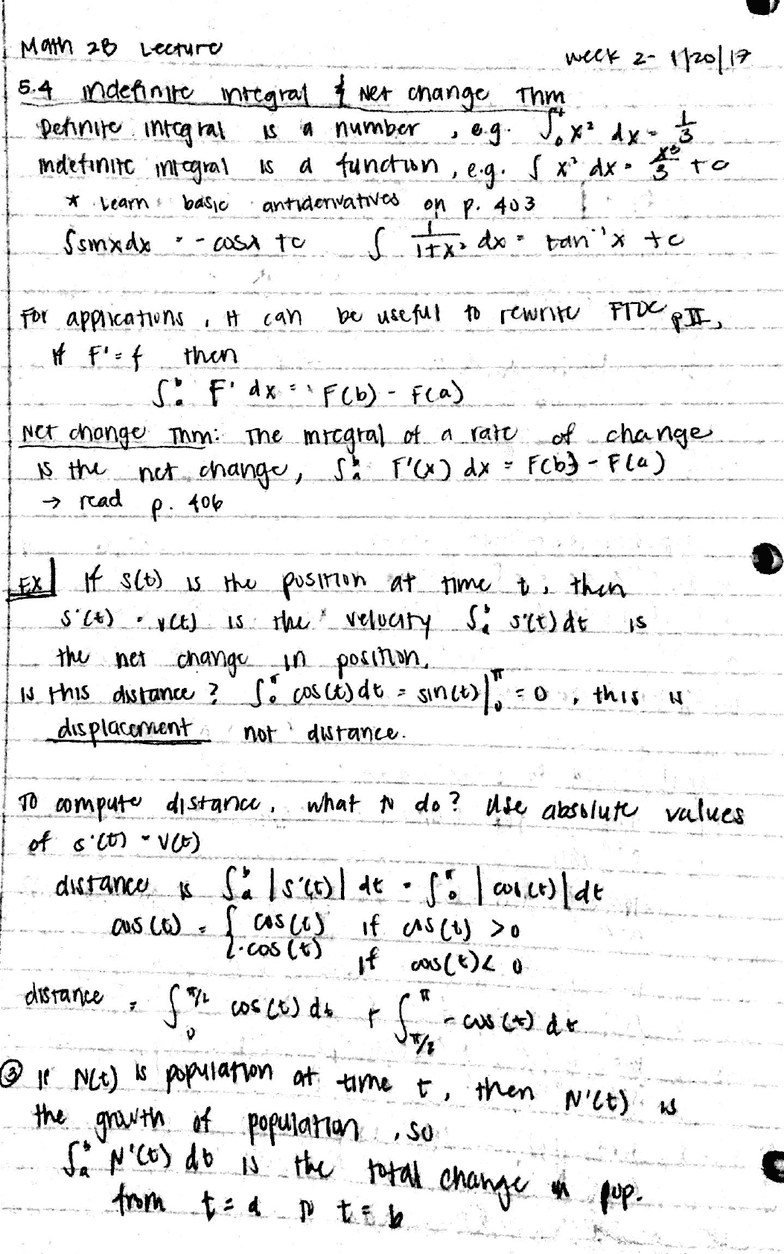 Math 2B Lecture week 2- 1/20/17
5.4 indefinite integral & Net change Thm
Definite integral is a number, e.g. ∫₀¹ x² dx = 1/3
indefinite integral is a function, e.g. ∫ x² dx = x³/3 + c
* Learn basic antiderivatives on p. 403
∫sinxdx = -cosx +c ∫ 1/(1+x²) dx = tan⁻¹x +c
For applications, it can be useful to rewrite FTOC pII,
if F' = f then
∫ₐᵇ F' dx = F(b) - F(a)
Net change Thm: The integral of a rate of change
is the net change, ∫ₐᵇ F'(x) dx = F(b) - F(a)
→ read p. 406
Ex| If s(t) is the position at time t, then
s'(t) = v(t) is the velocity ∫ₐᵇ s'(t) dt is
the net change in position.
Is this distance? ∫₀^π cos(t) dt = sin(t)|₀^π = 0, this is
displacement not distance.
To compute distance, what to do? Use absolute values
of s'(t) = v(t)
distance is ∫ₐᵇ |s'(t)| dt = ∫₀^π |cos(t)| dt
cos(t) = { cos(t) if cos(t) > 0
-cos(t) if cos(t) < 0
distance = ∫₀^π/2 cos(t) dt + ∫_π/2^π -cos(t) dt
③ If N(t) is population at time t, then N'(t) is
the growth of population, so
∫ₐᵇ N'(t) dt is the total change in pop.
from t = a to t = b